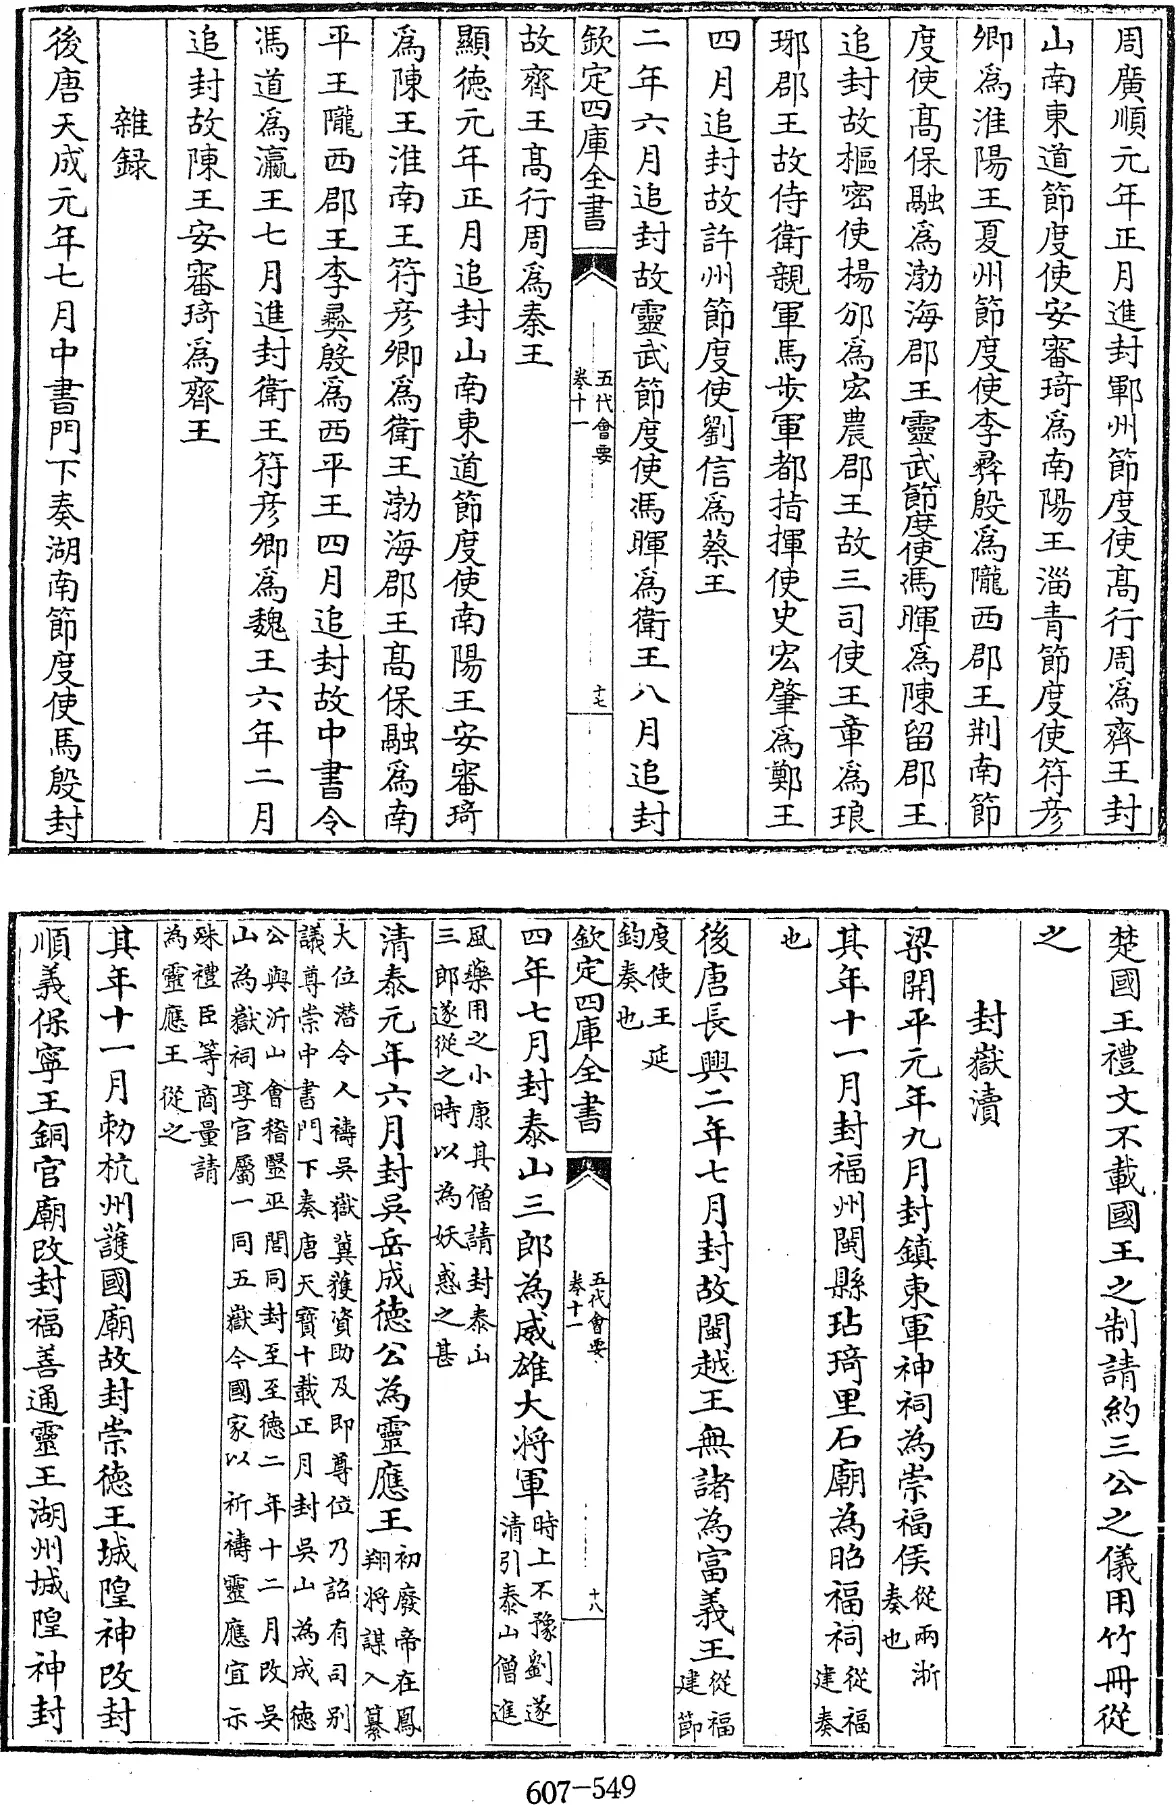 周廣順元年正月進封鄆州節度使高行周爲齊王封
山南東道節度使安審琦爲南陽王淄青節度使符彦
卿爲淮陽王夏州節度使李彝殷爲隴西郡王荆南節
度使髙保融爲渤海郡王靈武節度使馮暉爲陳留郡王
追封故樞密使楊邠爲宏農郡王故三司使王章爲琅
琊郡王故侍衛親軍馬步軍都指揮使史宏肇爲鄭王
四月追封故許州節度使劉信爲蔡王
二年六月追封故靈武節度使馮暉爲衛王八月追封
欽定四庫全書
五代會要
卷十一
十七
故齊王髙行周爲秦王
顯徳元年正月追封山南東道節度使南陽王安審琦
爲陳王淮南王符彦卿爲衛王渤海郡王髙保融爲南
平王隴西郡王李彞殷爲西平王四月追封故中書令
馮道爲瀛王七月進封衛王符彦卿爲魏王六年二月
追封故陳王安審琦爲齊王
雜録
後唐天成元年七月中書門下奏湖南節度使馬殷封
楚國王禮文不載國王之制請約三公之儀用竹冊從
之
封嶽瀆
梁開平元年九月封鎮東軍神祠為崇福侯從兩浙
奏也
其年十一月封福州閩縣玷琦里石廟為昭福祠從福
建奏
也
後唐長興二年七月封故閩越王無諸為富義王從福
建節
度使王延
鈞奏也
欽定四庫全書
五代會要
卷十一
十八
四年七月封泰山三郎為威雄大將軍時上不豫劉遂
清引泰山僧進
風藥用之小康其僧請封泰山
三郎遂從之時以為妖惑之甚
清泰元年六月封吳岳成德公為靈應王初廢帝在鳳
翔將謀入纂
大位潛令人禱吳嶽冀獲資助及即尊位乃詔有司别
議尊崇中書門下奏唐天寶十載正月封吳山為成徳
公與沂山會稽毉巫閭同封至至德二年十二月改吳
山為嶽祠享官屬一同五嶽今國家以祈禱靈應宜示
殊禮臣等商量請
為靈應王從之
其年十一月勅杭州護國廟故封崇德王城隍神改封
順義保寧王銅官廟改封福善通靈王湖州城隍神封
607-549